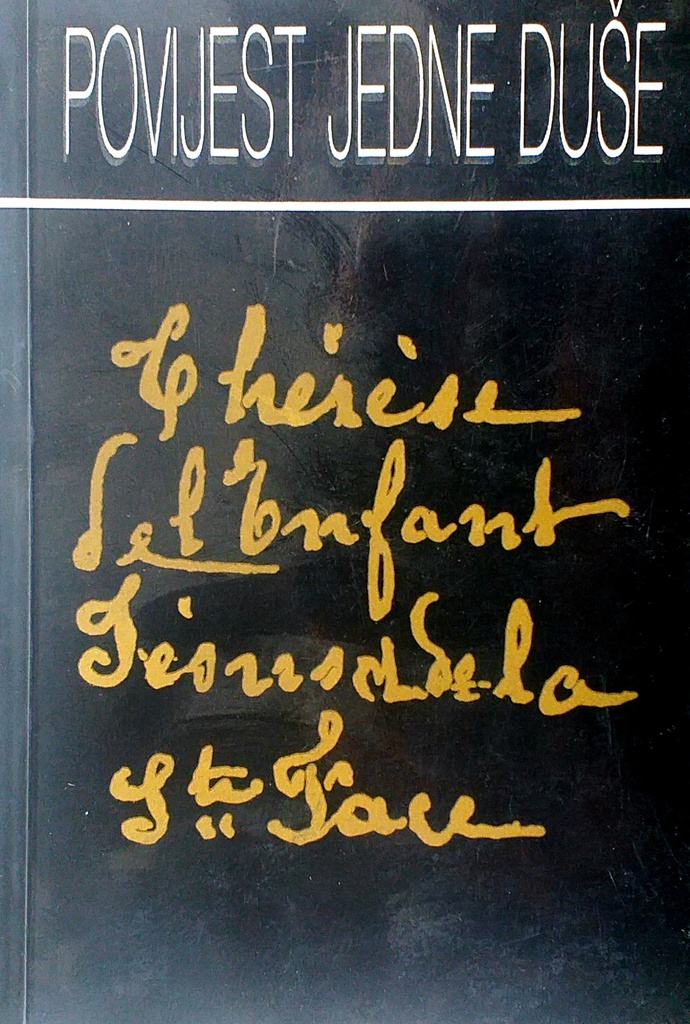 POVIJEST JEDNE DUŠE
Thérèse
de l'Enfant
Jésus et de la
Ste Face